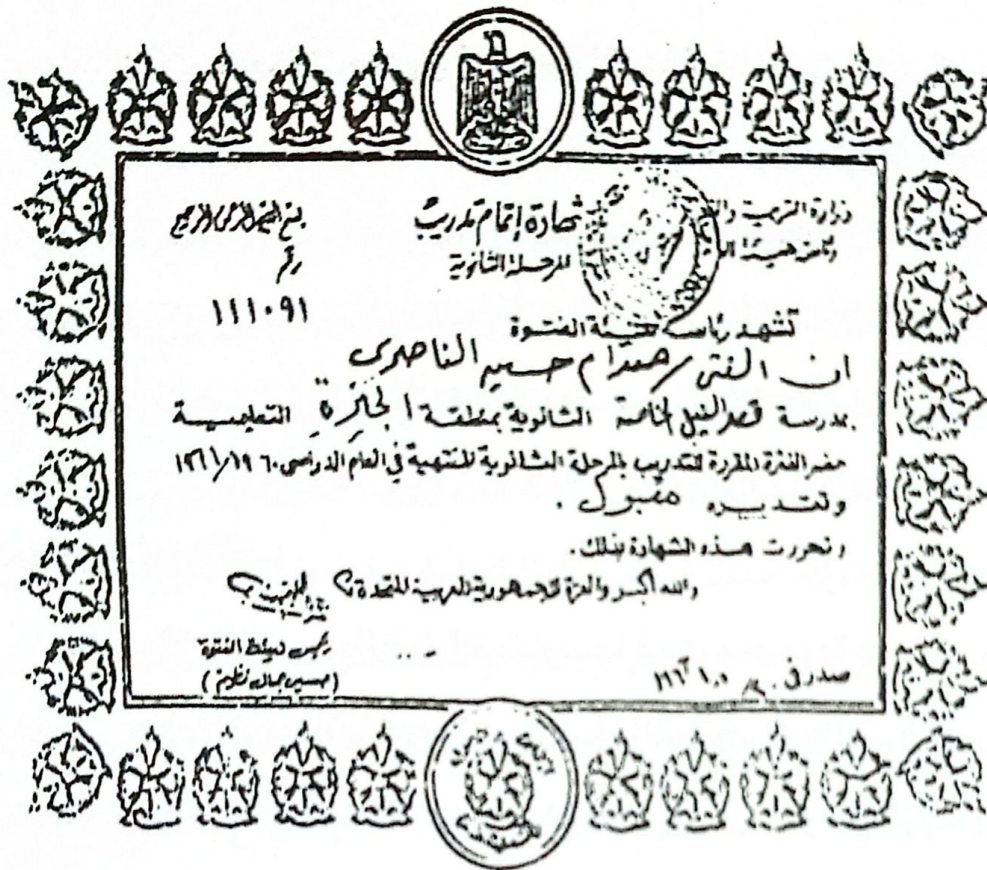 بسم الله الرحمن الرحيم
وزارة التربية
شهادة إتمام تدريب
للمرحلة الثانوية
رقم
١١١٠٩١
تشهد رئاسة هيئة الفتوة
ان الفتى / صدام حسين الناصرى
بمدرسة قصر النيل الخاصة الثانوية بمنطقة الجيزة التعليمية
حضر الفترة المقررة للتدريب بالمرحلة الثانوية المنتهية في العام الدراسى ١٩٦٠/١٩٦١
وتقديره مقبول.
وتحررت هذه الشهادة بذلك.
والله أكبر والعزة للجمهورية العربية المتحدة
رئيس هيئة الفتوة
صدر في